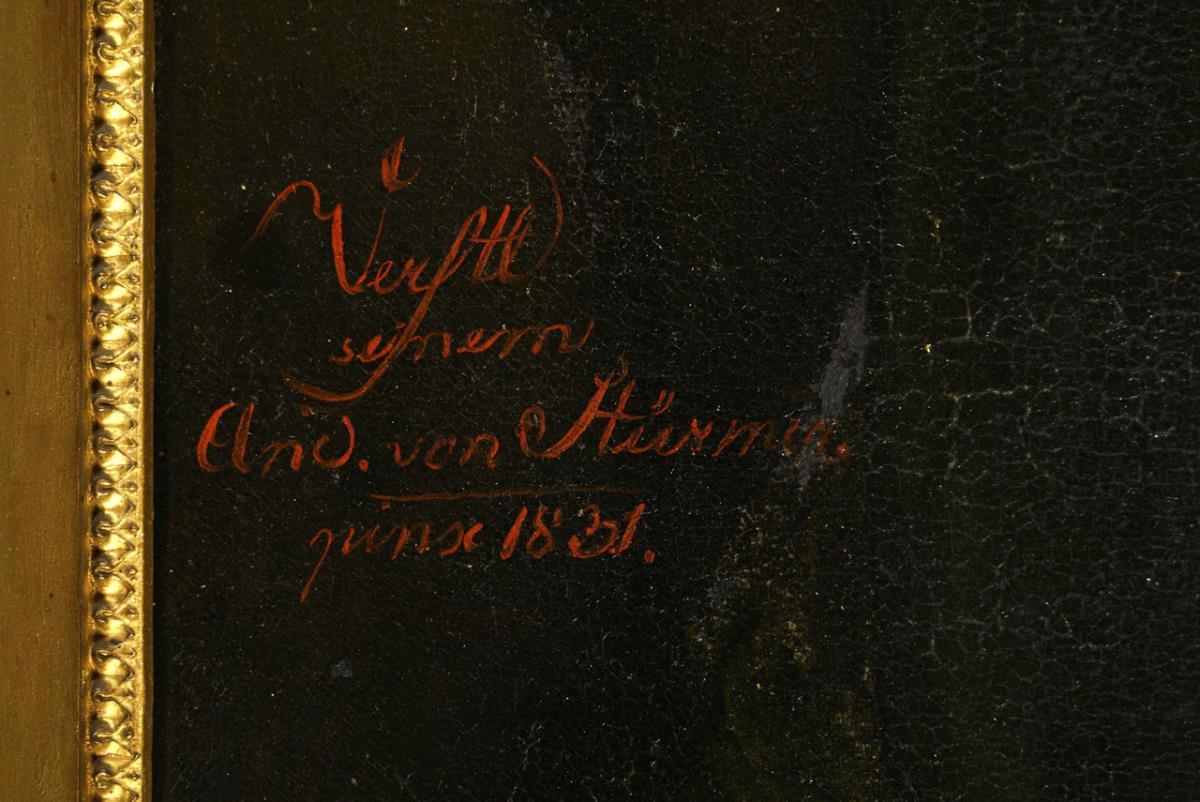 seinem
And. von Stürmer.
pinx 1831.